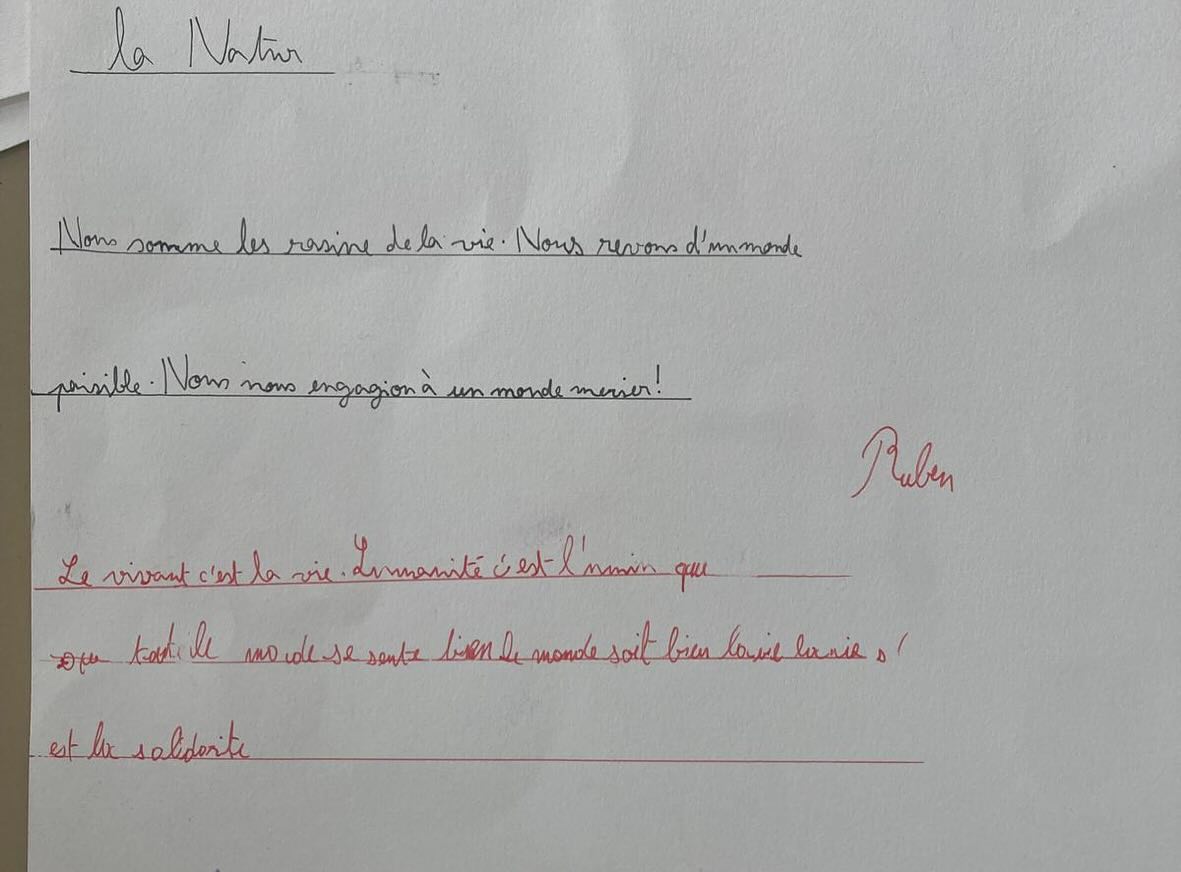 la Natur
Nous somme les rasine de la vie. Nous revons d'un monde
paisible. Nous nous engagion à un monde merier!
Ruben
Le vivant c'est la vie. Lumanité c'est l'umin que
tout le monde se sente bien le monde soit bien la vie la vie s'
est la solidarite